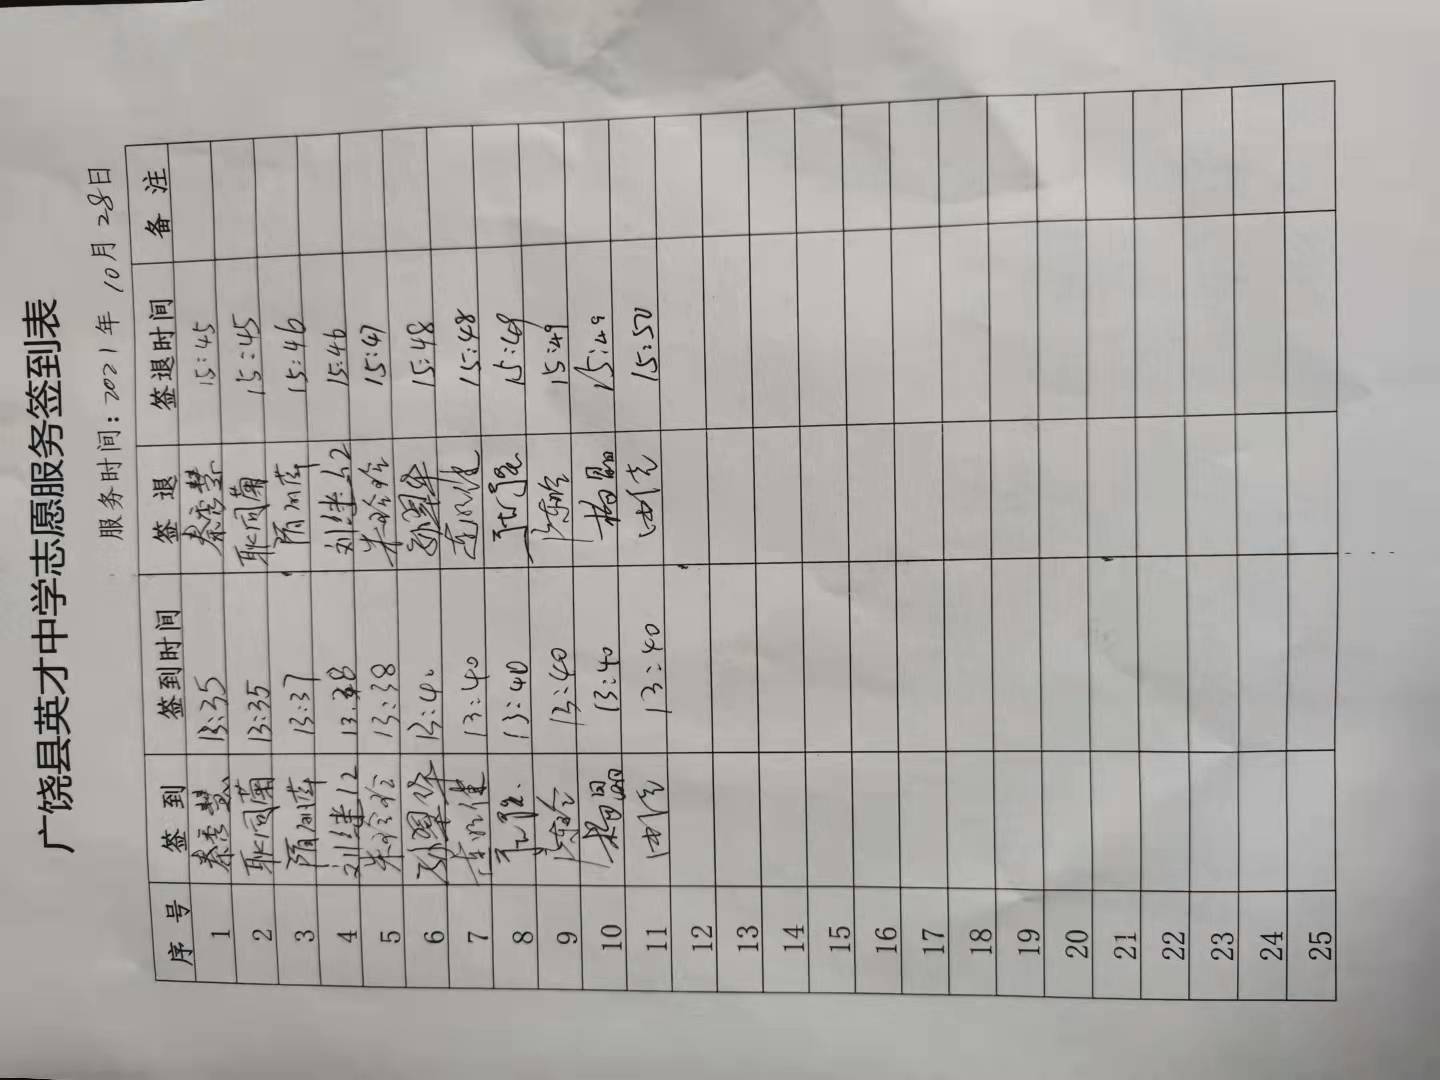 广饶县英才中学志愿服务签到表
服务时间：2021年 10月 28日
序 号 签 到 签到时间 签 退 签退时间 备 注
1 秦秀慧 13:35 秦秀慧 15:45
2 耿同菌 13:35 耿同菌 15:45
3 13:37 15:46
4 13:38 15:46
5 朱玲玲 13:38 朱玲玲 15:47
6 孙翠华 13:40 孙翠华 15:48
7 13:40 15:48
8 13:40 15:49
9 13:40 15:49
10 杨晶 13:40 杨晶 15:49
11 13:40 15:50
12
13
14
15
16
17
18
19
20
21
22
23
24
25